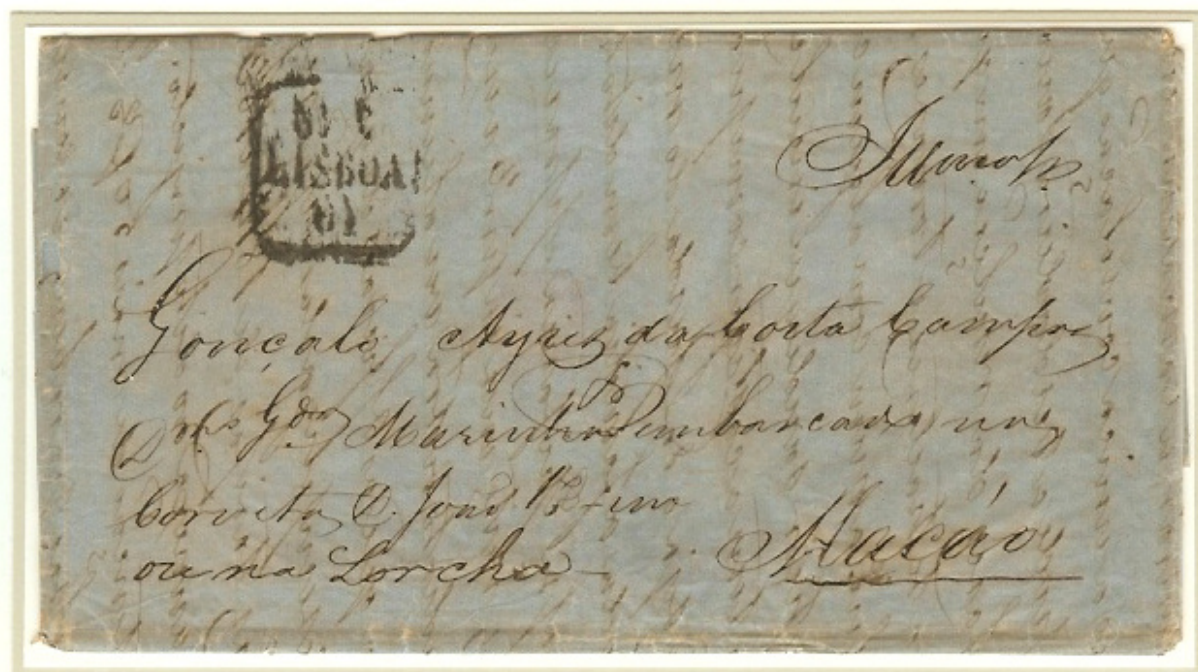 LISBOA
61
Illmo Sr.
Gonçalo Ayres da Costa Campos
Gda Marinha embarcado na
Corveta D. João 1º em
ou na Lorcha
Macáo